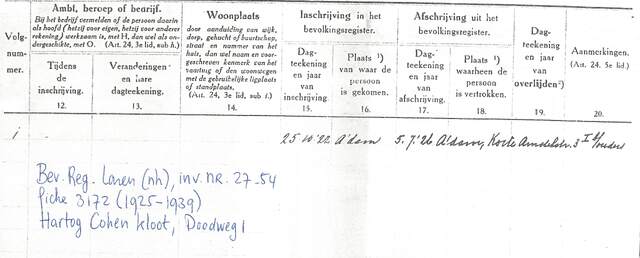 Volg-
num-
mer.
Ambt, beroep of bedrijf.
Bij het bedrijf vermelden of de persoon daarin
als hoofd (hetzij voor eigen, hetzij voor anderer
rekening) werkzaam is, met H, dan wel als on-
dergeschikte, met O. (Art. 24, 3e lid, sub h.)
Tijdens
de
inschrijving.
12.
Veranderingen
en hare
dagteekening.
13.
Woonplaats
door aanduiding van wijk,
dorp, gehucht of buurtschap,
straat en nummer van het
huis, dan wel naam en voor-
geschreven kenmerk van het
vaartuig of den woonwagen
met de gebruikelijke ligplaats
of standplaats.
(Art. 24, 3e lid, sub f.)
14.
Inschrijving in het
bevolkingsregister.
Dag-
teekening
en jaar
van
inschrijving.
15.
Plaats 1)
van waar de
persoon
is gekomen.
16.
Afschrijving uit het
bevolkingsregister.
Dag-
teekening
en jaar
van
afschrijving.
17.
Plaats 1)
waarheen de
persoon
is vertrokken.
18.
Dag-
teekening
en jaar
van
overlijden2)
19.
Aanmerkingen.
(Art. 24, 5e lid.)
20.
1 25 10 '22 A'dam 5. 7. '26 A'dam, Korte Amstelstr. 3 I
Bev. Reg. Loenen (nh), inv. nr. 27-54
fiche 3172 (1925-1939)
Hartog Cohen kloot, Doodweg 1